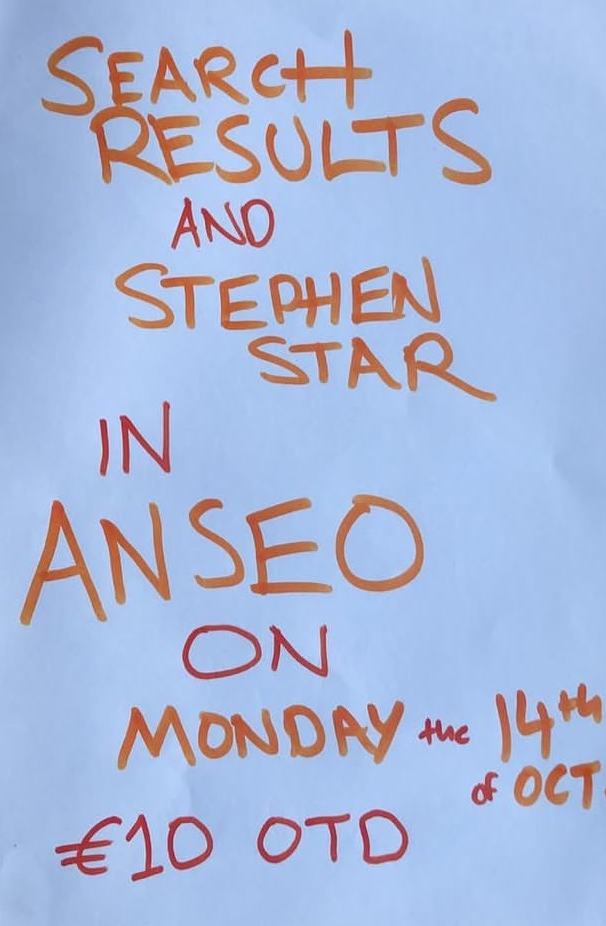 SEARCH
RESULTS
AND
STEPHEN
STAR
IN
ANSEO
ON
MONDAY the 14th
of OCT.
€10 OTD